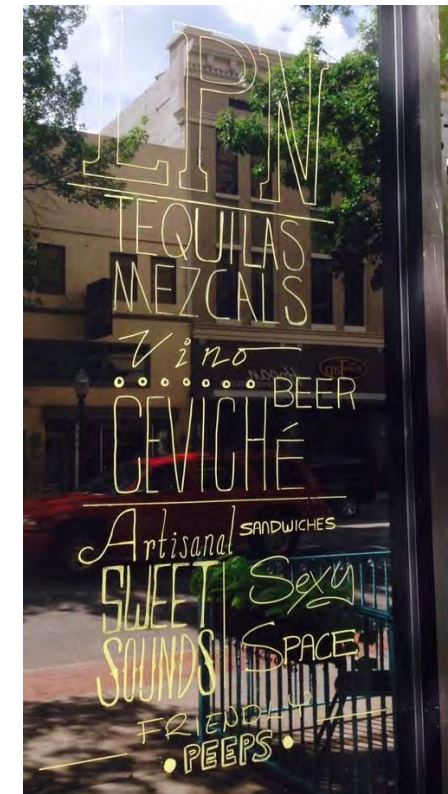 LPN
TEQUILAS
MEZCALS
Vino
BEER
CEVICHÉ
Artisanal SANDWICHES
SWEET Sexy
SOUNDS SPACE
FRIENDLY
• PEEPS •